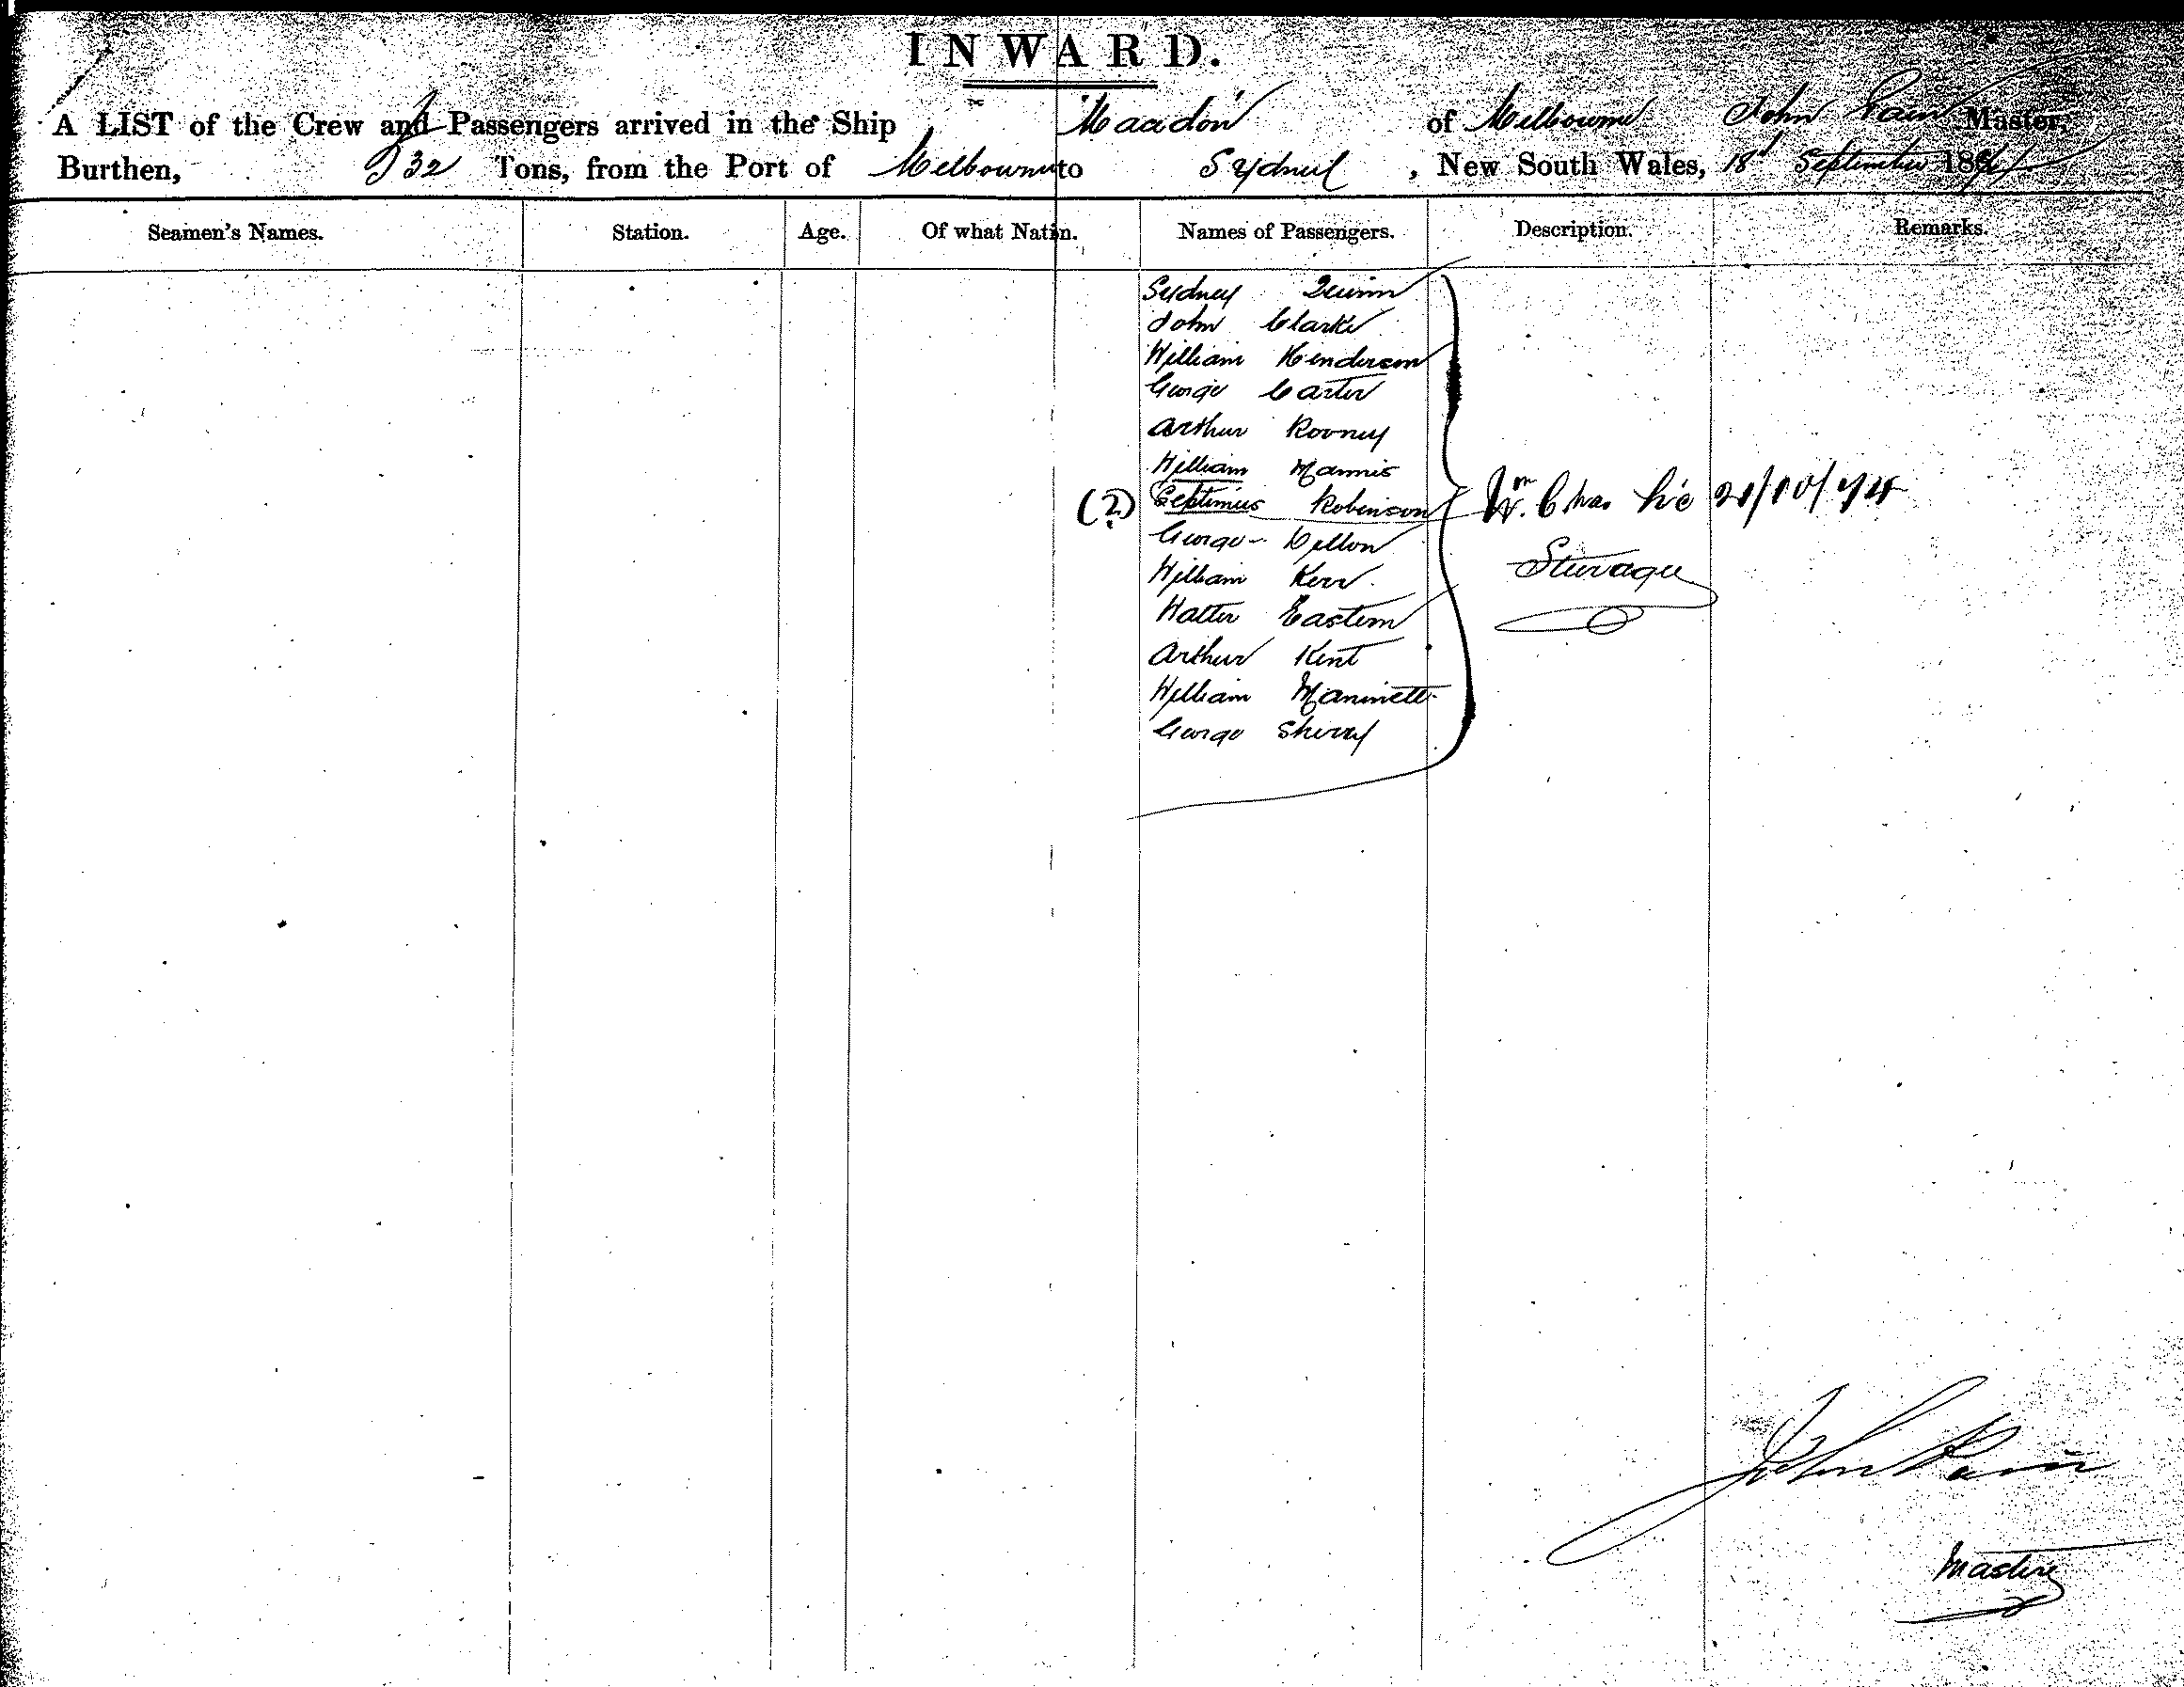 INWARD.
A LIST of the Crew and Passengers arrived in the Ship of Melbourne John Master,
Burthen, Tons, from the Port of Melbourne to Sydney, New South Wales, 18th September 18
Seamen's Names. Station. Age. Of what Natin. Names of Passengers. Description. Remarks.
Sydney Quinn
John Clarke
William Henderson
George Carter
Arthur Rooney
William Mannis
(?) Septimus Robinson Wm.
George Dillon
William Kerr
Steerage
Walter Eastern
Arthur Kent
William
George Sherry
John
Master